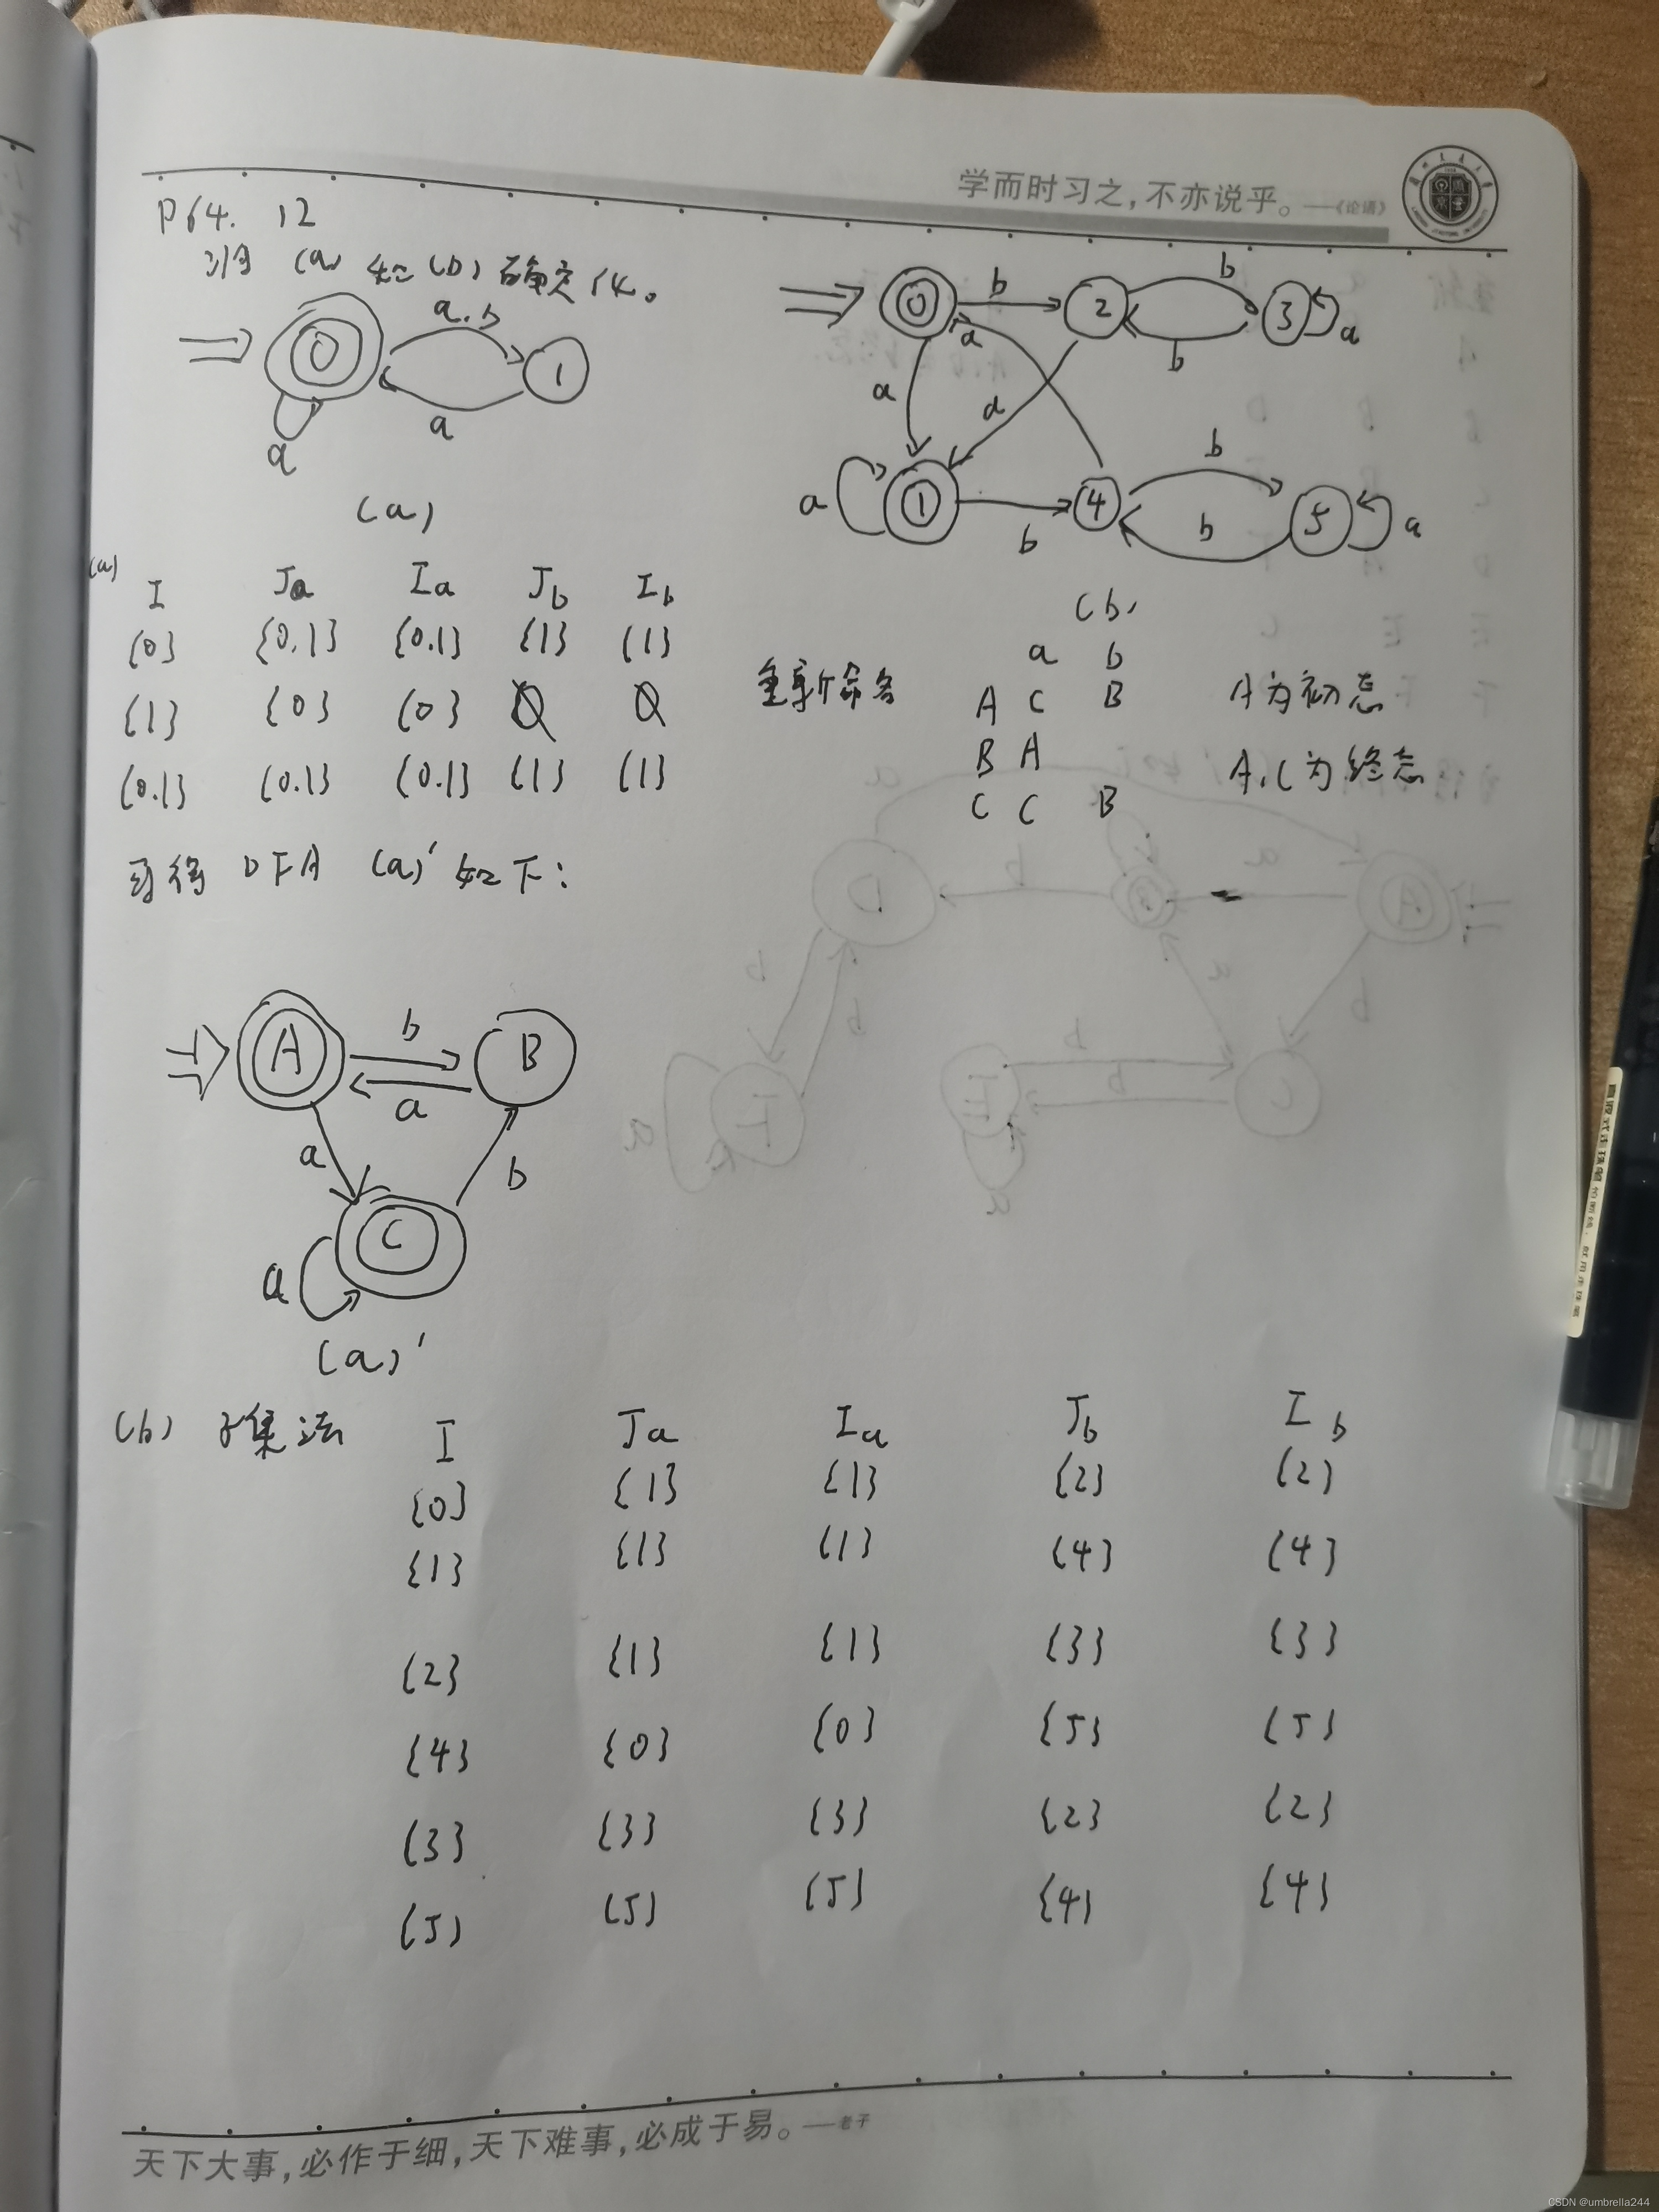 学而时习之,不亦说乎。——《论语》
P64. 12
将 (a) 和 (b) 确定化。
0 a.b 1
a
a
(a)
0 b 2 b 3 a
b
a a a
a 1 b 4 b 5 a
b
(b)
(a) I Ja Ia Jb Ib
{0} {0,1} {0.1} {1} {1}
{1} {0} {0} Ø Ø
{0.1} {0.1} {0.1} {1} {1}
重新命名 a b
A C B A为初态
B A A.C为终态
C C B
可得 DFA (a)' 如下:
A b B
a
a b
a C
(a)'
(b) 子集法 I Ja Ia Jb Ib
{0} {1} {1} {2} {2}
{1} {1} {1} {4} {4}
{2} {1} {1} {3} {3}
{4} {0} {0} {5} {5}
{3} {3} {3} {2} {2}
{5} {5} {5} {4} {4}
天下大事,必作于细,天下难事,必成于易。——老子
CSDN @umbrella244